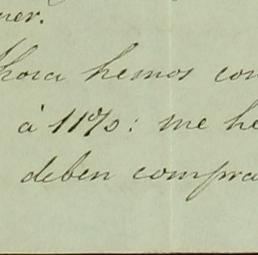 ner.
hora hemos con
á 11%: me he
deben compra